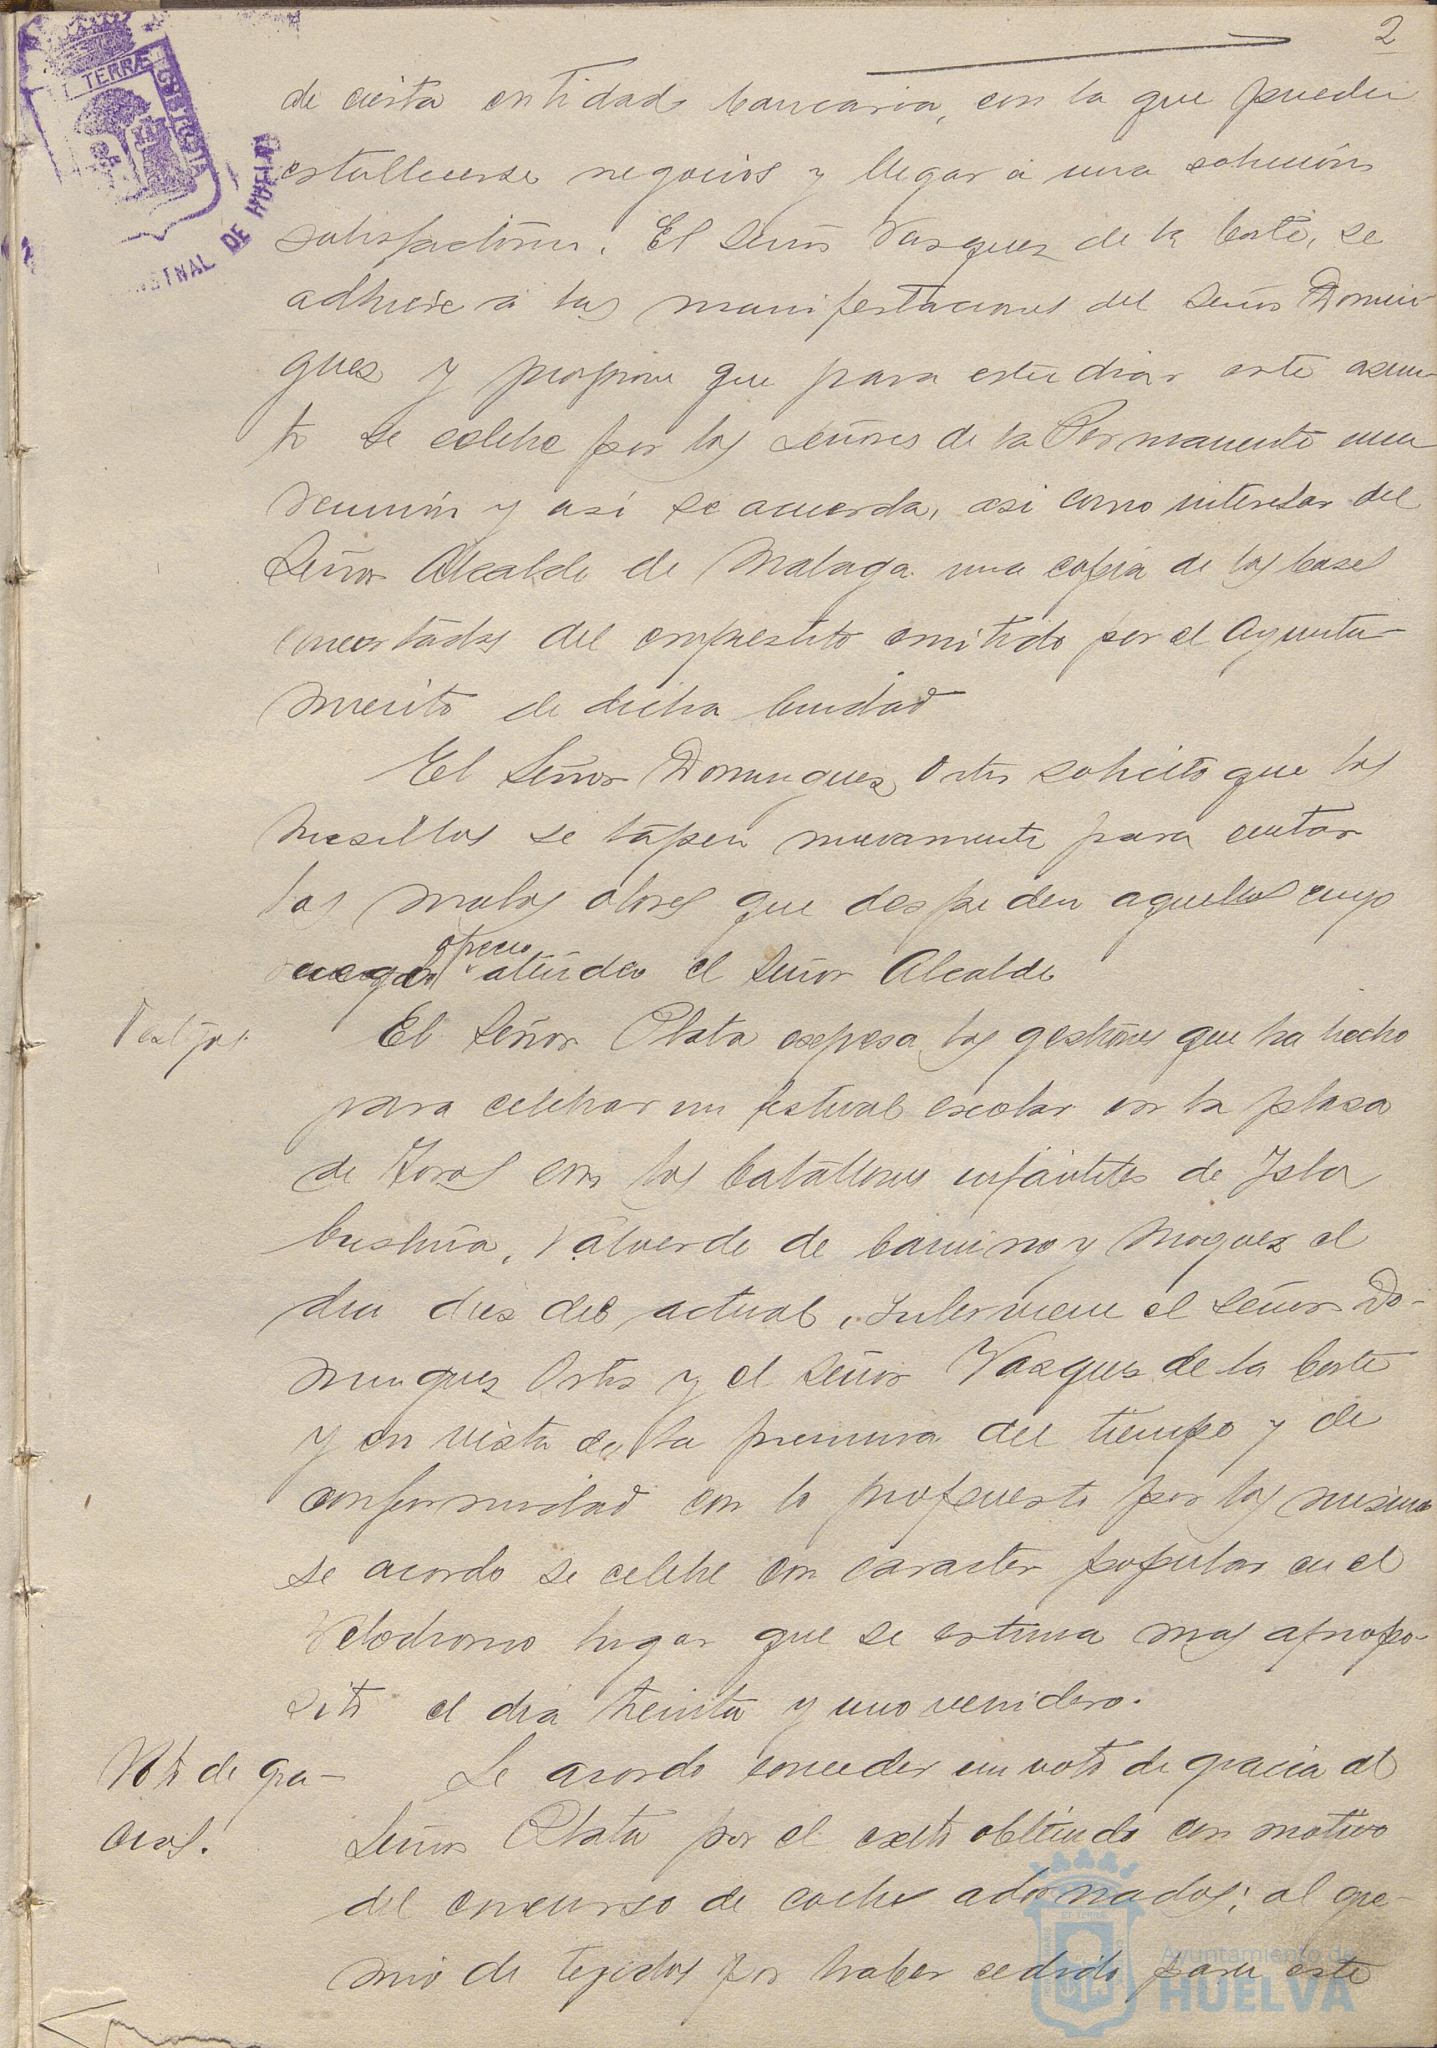 2
TERRÆ CUSTODIA
DE HUELVA
de cierta entidad bancaria, con la que pueden
establecerse negocios y llegar a una solución
satisfactoria. El Señor Vazquez de la Corte, se
adhiere a las manifestaciones del Señor Domin-
guez y propone que para estudiar este asun-
to se celebre por los señores de la Permanente una
reunión y así se acuerda, asi como interesar del
Señor Alcalde de Malaga una copia de las bases
concertadas del emprestito emitido por el Ayunta-
miento de dicha Ciudad
El Señor Dominguez Ortiz solicito que los
husillos se tapen nuevamente para evitar
los malos olores que despiden aquellos cuyo
ruego ofrecio atender el Señor Alcalde
Festejos. El Señor Plata expresa las gestiones que ha hecho
para celebrar un festival escolar en la plaza
de Toros con los batallones infantiles de Isla
Cristina, Valverde del Camino y Moguer el
dia diez del actual, Interviene el Señor Do-
minguez Ortiz y el Señor Vazquez de la Corte
y en vista de la premura del tiempo y de
conformidad con lo propuesto por los mismos
se acordo se celebre con caracter popular en el
Velodromo lugar que se estima mas apropo-
sito el dia treinta y uno venidero.
Voto de gra- Se acordo conceder un voto de gracia al
cias. Señor Plata por el exito obtenido con motivo
del concurso de coches adornados; al gre-
mio de tejidos por haber cedido para este
Ayuntamiento de
HUELVA